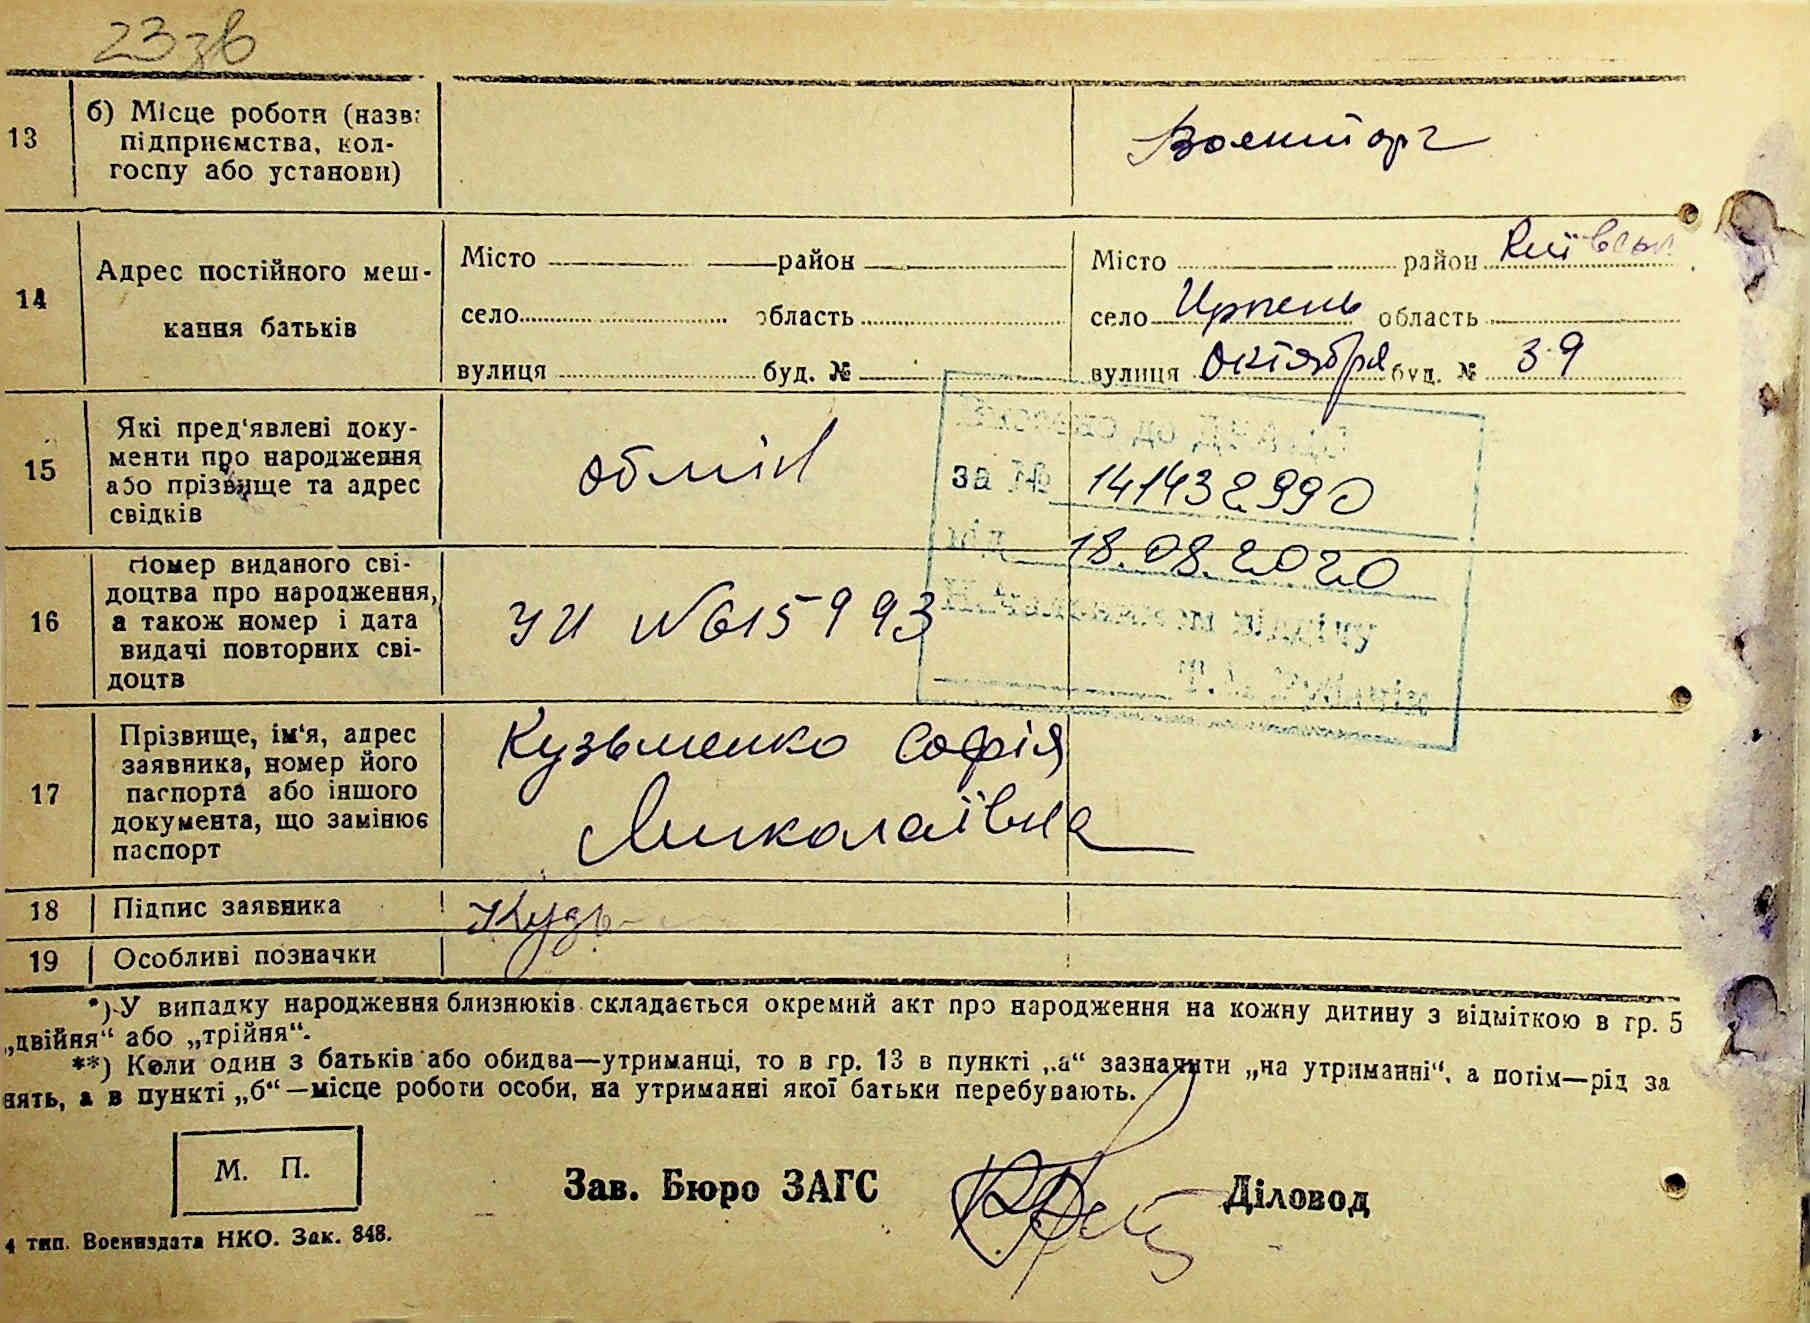 23зв
13 б) Місце роботи (назва
підприємства, кол-
госпу або установи)
Воєнторг
14 Адрес постійного меш-
кання батьків
Місто район Місто район Київськ
село область село Ирпень область
вулиця буд. № вулиця Октября буд. № 39
15 Які пред'явлені доку-
менти про народження
або прізвище та адрес
свідків
обмін
за № 141432990
18.08.2020
16 Номер виданого сві-
доцтва про народження,
а також номер і дата
видачі повторних сві-
доцтв
УИ №615993
17 Прізвище, ім'я, адрес
заявника, номер його
паспорта або іншого
документа, що замінює
паспорт
Кузьменко Софія
Миколаївна
18 Підпис заявника Кузь
19 Особливі позначки
*) У випадку народження близнюків складається окремий акт про народження на кожну дитину з відміткою в гр. 5
„двійня“ або „трійня“.
**) Коли один з батьків або обидва—утриманці, то в гр. 13 в пункті „а“ зазначити „на утриманні“, а потім—рід за
нять, а в пункті „б“—місце роботи особи, на утриманні якої батьки перебувають.
М. П.
Зав. Бюро ЗАГС Діловод
4 тип. Воениздата НКО. Зак. 848.